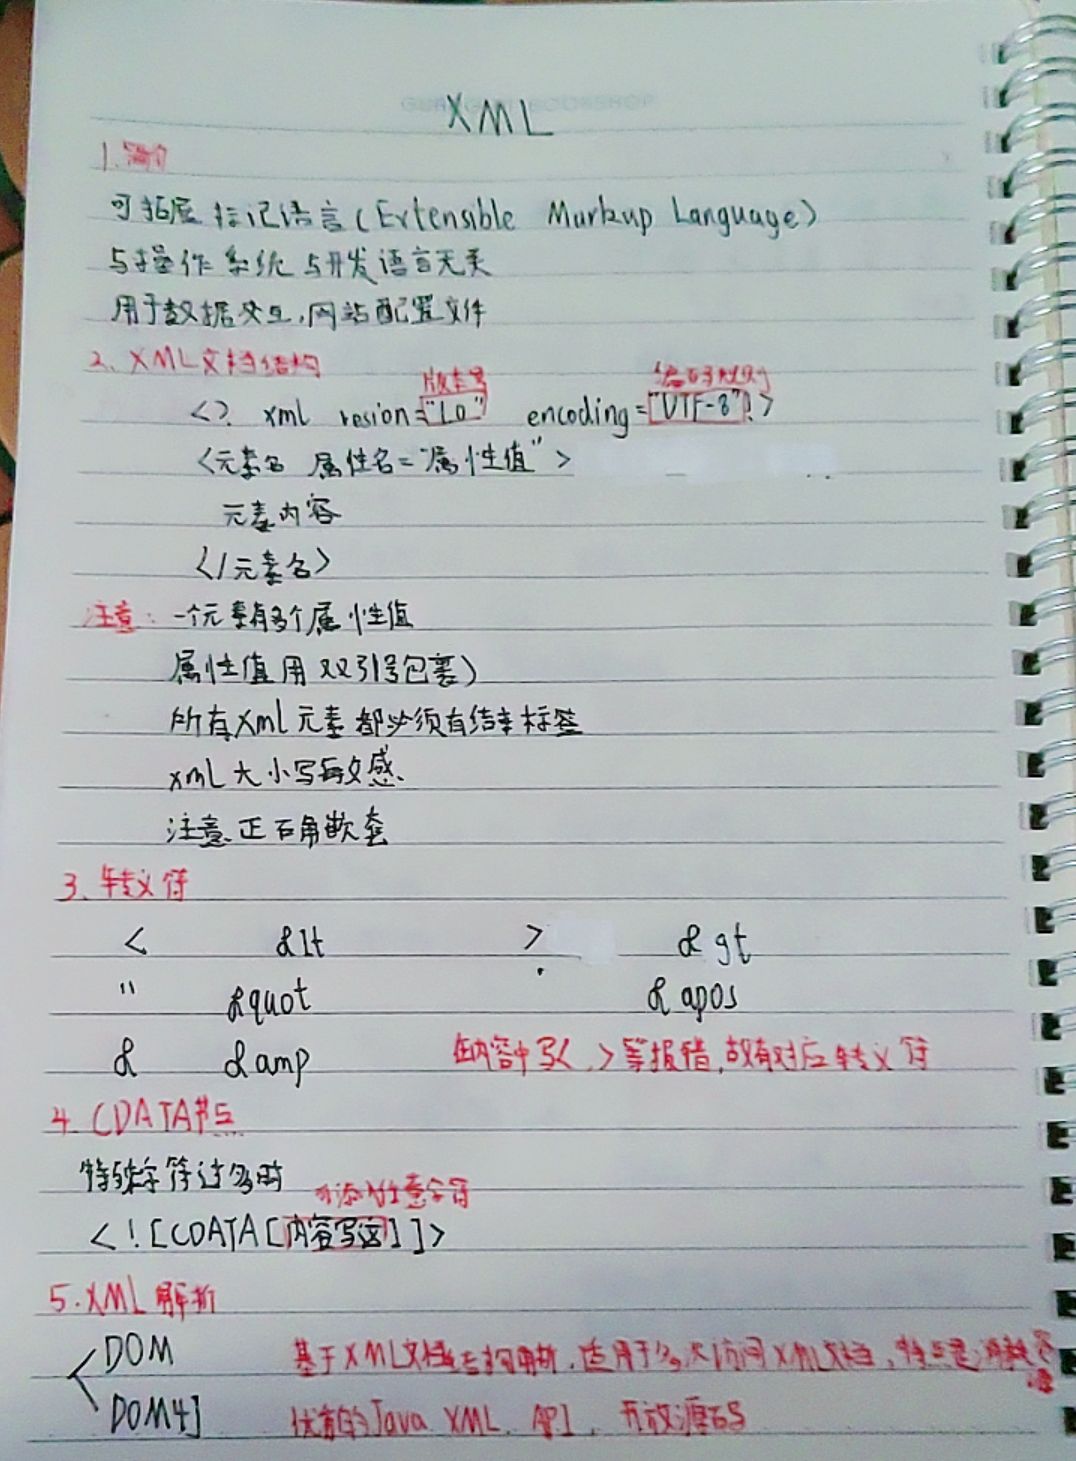 XML
1.简介
可拓展标记语言(Extensible Markup Language)
与操作系统与开发语言无关
用于数据交互,网站配置文件
2、XML文档结构
版本号 编码规则
<? xml vesion="1.0" encoding="UTF-8"?>
<元素名 属性名="属性值">
元素内容
</元素名>
注意:一个元素有多个属性值
属性值用双引号包裹)
所有xml元素都必须有结束标签
xmL大小写敏感、
注意正确嵌套
3、转义符
< &lt > &gt
" &quot &apos
& &amp 在内容中写<、>等报错,故有对应转义符
4.CDATA节点
特殊字符过多时
可添加任意字符
<![CDATA[内容写这]]>
5.XML解析
DOM 基于XML文档结构解析,适用于多次访问XML文档,特点是消耗资源
DOM4J 优秀的Java XML API,开放源码